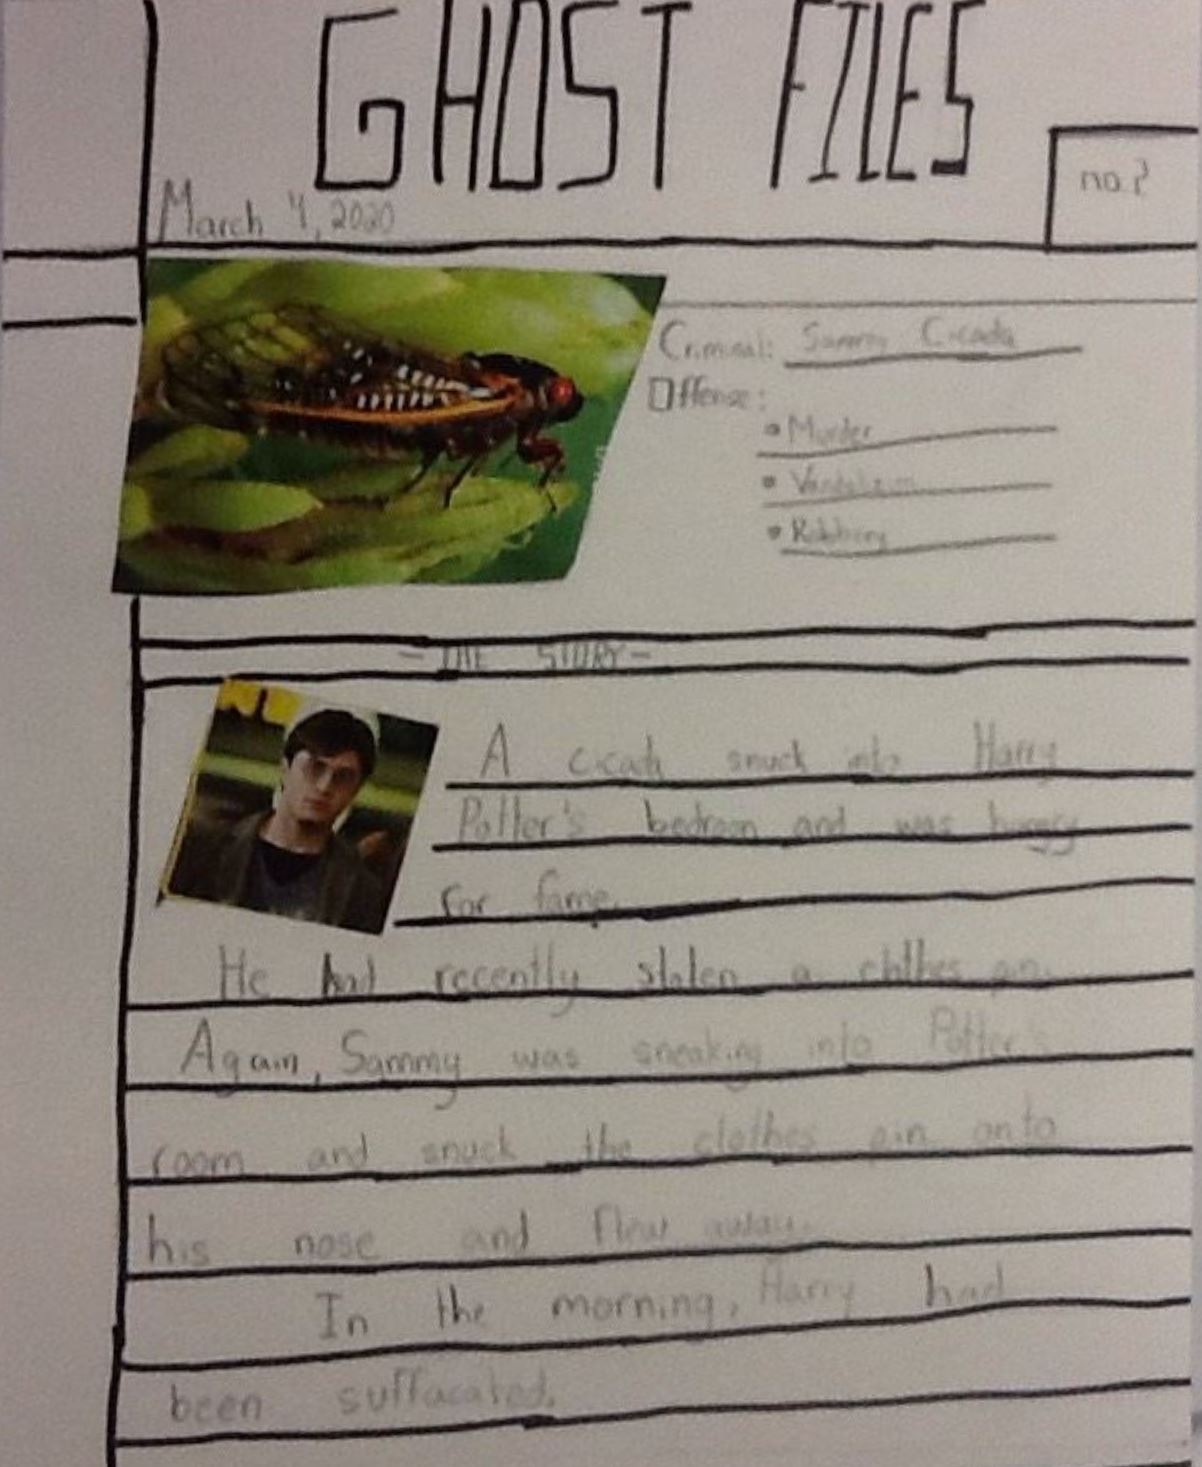 GHOST FILES
no.2
March 4, 2020
Criminal: Sammy Cicada
Offense:
• Murder
• Vandalism
• Robbery
- THE STORY -
A cicada snuck into Harry
Potter's bedroom and was hungry
for fame.
He had recently stolen a clothes pin.
Again, Sammy was sneaking into Potter's
room and snuck the clothes pin onto
his nose and flew away.
In the morning, Harry had
been suffacated.